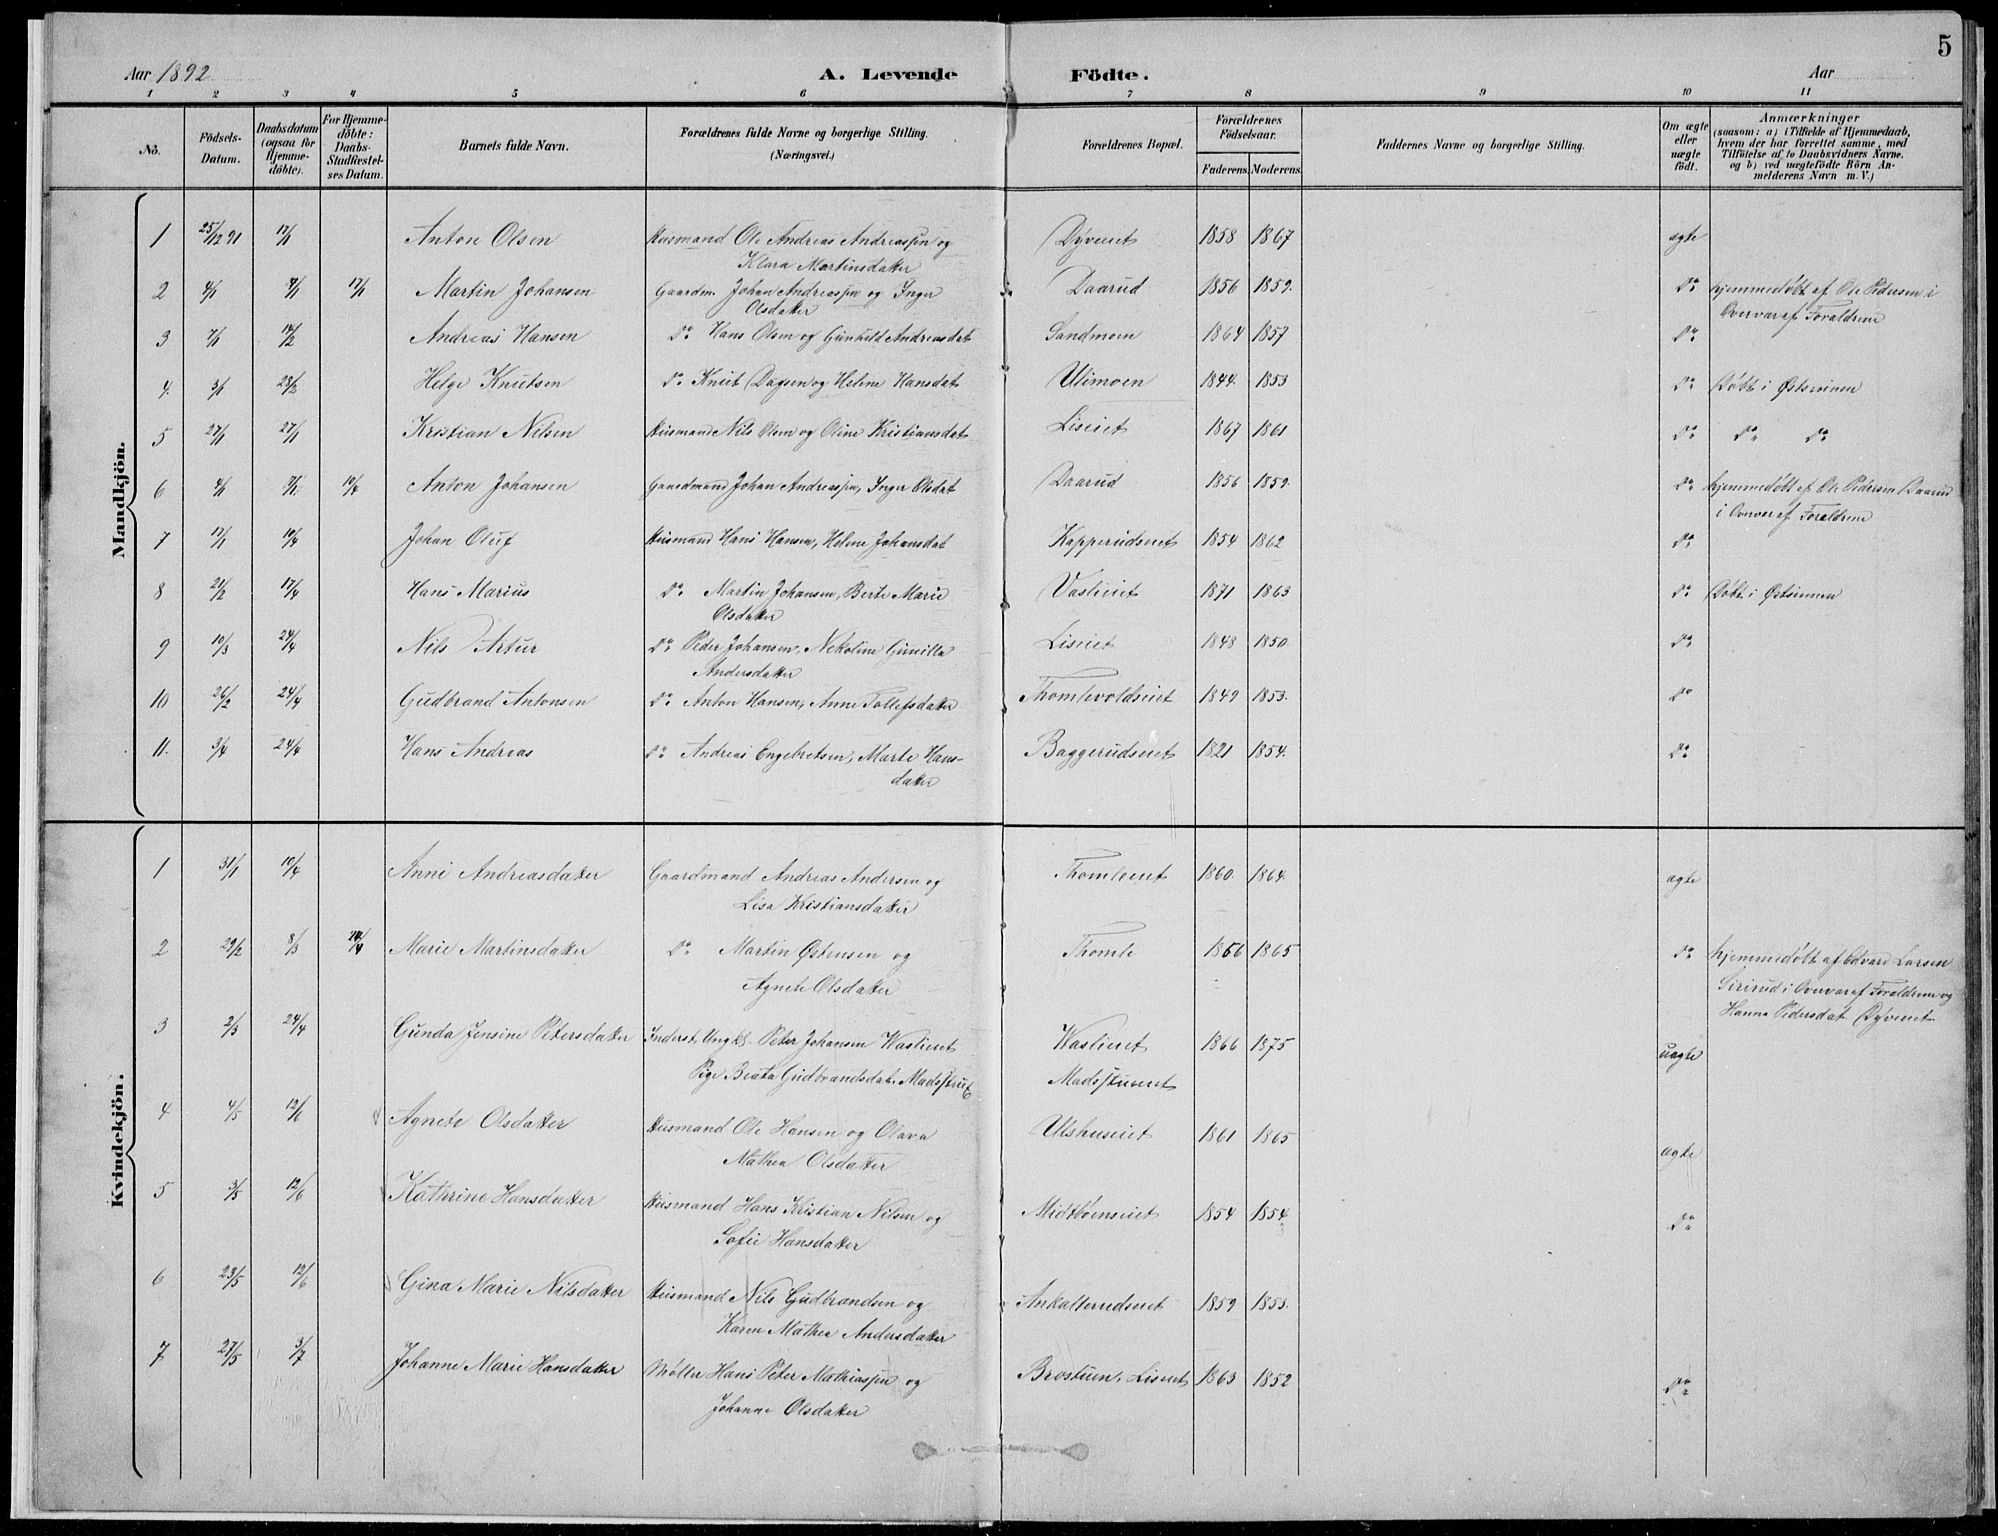 5
Aar 1892 A. Levende Födte. Aar
1 2 3 4 5 6 7 8 9 10 11
No. Födsels-Datum. Daabsdatum (ogsaa for Hjemme-döbte). For Hjemme-döbte: Daabs-Stadfæstel-ses Datum. Barnets fulde Navn. Forældrenes fulde Navne og borgerlige Stilling. (Næringsvei.) Forældrenes Bopæl. Forældrenes Födselsaar. Faderens. Moderens. Faddernes Navne og borgerlige Stilling. Om ægte eller uægte födt. Anmærkninger (saasom: a) i Tilfælde af Hjemmedaab, hvem der har forrettet samme, med Tilföielse af to Daabsvidners Navne. og b) ved uægtefödte Börn An-melderens Navn m. V.)
Mandkjön.
1 25/12 91 17/1 Anton Olsen Husmand Ole Andreas Andreassen og Dyveiet 1858 1867 ægte
Klara Martinsdatter
2 4/1 17/1 Martin Johansen Gaardm. Johan Andreassen og Inger Daarud 1856 1859. Do hjemmedøbt af Ole Pedersen i
Olsdatter Overvær af Forældrene
3 7/1 14/2 Andreas Hansen Do Hans Olsen og Gunhild Andreasdat Sandmoen 1864 1857 Do
4. 3/1 28/2 Helge Knutsen Do Knut Dagsen og Helene Hansdat Ulimoen 1844. 1853 Do Døbt i Østsinnen
5 27/1 Kristian Nilsen Husmand Nils Olsen og Oline Kristiansdat Liseiet 1867 1861 Do Do Do
6 4/1 10/4 Anton Johansen Gaardmand Johan Andreassen, Inger Olsdat Daarud 1856 1859. Do hjemmedøbt af Ole Pedersen Daarud
i Overvær af Forældrene
7 10/4 Johan Oluf Husmand Hans Hansen, Helene Johansdat Kapperudseiet 1854 1862 Do
8 21/2 17/4 Hans Marius Do Martin Johansen, Berte Marie Vaslieiet 1871 1863 Do Døbt i Østsinnen
Olsdatter
9 10/3 24/4 Nils Artur Do Peder Johansen, Nekoline Gunilla Liseiet 1848 1850. Do
Andersdatter
10 26/2 24/4 Gudbrand Antonsen Do Anton Hansen, Anne Tollefsdatter Thomlevoldseiet 1849 1853. Do
11. 3/4 24/4 Hans Andreas Do Andreas Engebretsen, Marte Hans- Baggerudseiet 1821 1854. Do
datter
Kvindekjön.
1 31/1 10/4 Anni Andreasdatter Gaardmand Andreas Andersen og Thomleeiet 1860. 1864. ægte
Lisa Kristiansdatter
2 29/2 8/3 Marie Martinsdatter Do Martin Østensen og Thomle 1866 1865 Do hjemmedøbt af Edvard Larsen
Agnete Olsdatter Siririd i Overvær af Forældrene og
Hanna Pedersdat Dyveiet
3 2/3 24/4 Gunda Jensine Petersdatter Inderst, Ungkl. Peter Johansen Waslieiet Waslieiet 1866 1875 uægte
Pige Beata Gudbrandsdat. Madsstueiet Madsstueiet
4 4/5 12/6 Agnete Olsdatter Husmand Ole Hansen og Olava Ulshuseiet 1861 1865 ægte
Mathea Olsdatter
5 3/5 12/6 Kathrine Hansdatter Husmand Hans Kristian Nilsen og Midtbøenseiet 1854 1854. Do
Sofie Hansdatter
6 23/5 12/6 Gina Marie Nilsdatter Husmand Nils Gudbrandsen og Ankalterudseiet 1859 1855.
Karen Mathea Andersdatter
7 27/5 3/7 Johanne Marie Hansdatter Møller Hans Peter Mathiassen og Brostuen, Liseiet 1863 1852 Do
Johanne Olsdatter